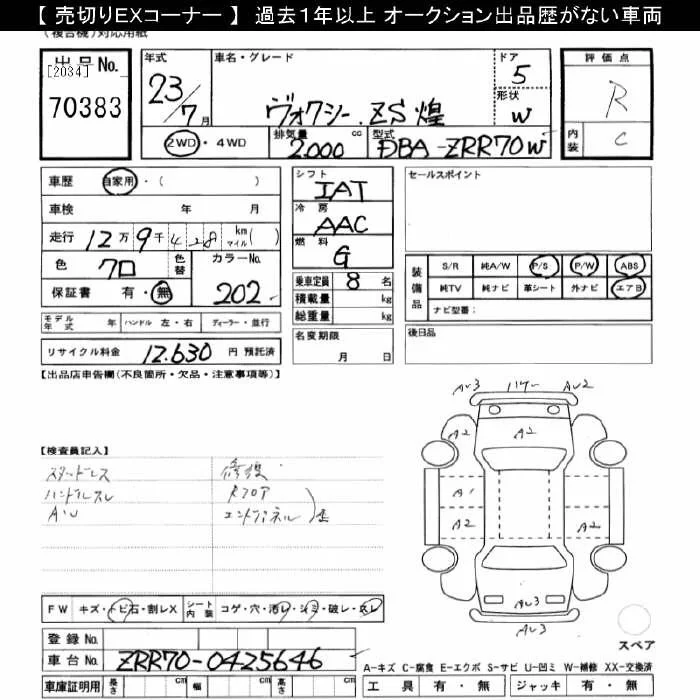 【 売切りEXコーナー 】 過去1年以上 オークション出品歴がない車両
(複合機)対応用紙
出品No.
[2034]
70383
年式
23/7月
車名・グレード
ヴォクシー ZS煌
ドア
5
形状
W
評価点
R
内装
C
2WD・4WD
排気量
2000 cc
型式
DBA-ZRR70W
車歴 自家用・( )
車検 年 月
走行 12万9千428 km マイル( )
色 クロ 色替 カラーNo. 202
保証書 有・無
モデル年式 年 ハンドル 左・右 ディーラー・並行
リサイクル料金 12.630 円 預託済
シフト
IAT
冷房
AAC
燃料
G
乗車定員 8 名
積載量 kg
総重量 kg
名変期限
月 日
セールスポイント
装備品
S/R 純A/W P/S P/W ABS
純TV 純ナビ 革シート 外ナビ エアB
ナビ型番:
後日品
【出品店申告欄(不良箇所・欠品・注意事項等)】
【検査員記入】
スタッドレス
ハンドルスレ
AU
修復
Rフロア
エンドパネル
A2
A2
A1
A2
A2
FW キズ・トビ石・割レX シート内装 コゲ・穴・汚レ・シミ・破レ・スレ
登録No.
車台No. ZRR70-0425646
車庫証明用 長さ cm 幅 cm 高さ cm
スペア
A-キズ C-腐食 E-エクボ S-サビ U-凹ミ W-補修 XX-交換済
工具 有・無 ジャッキ 有・無